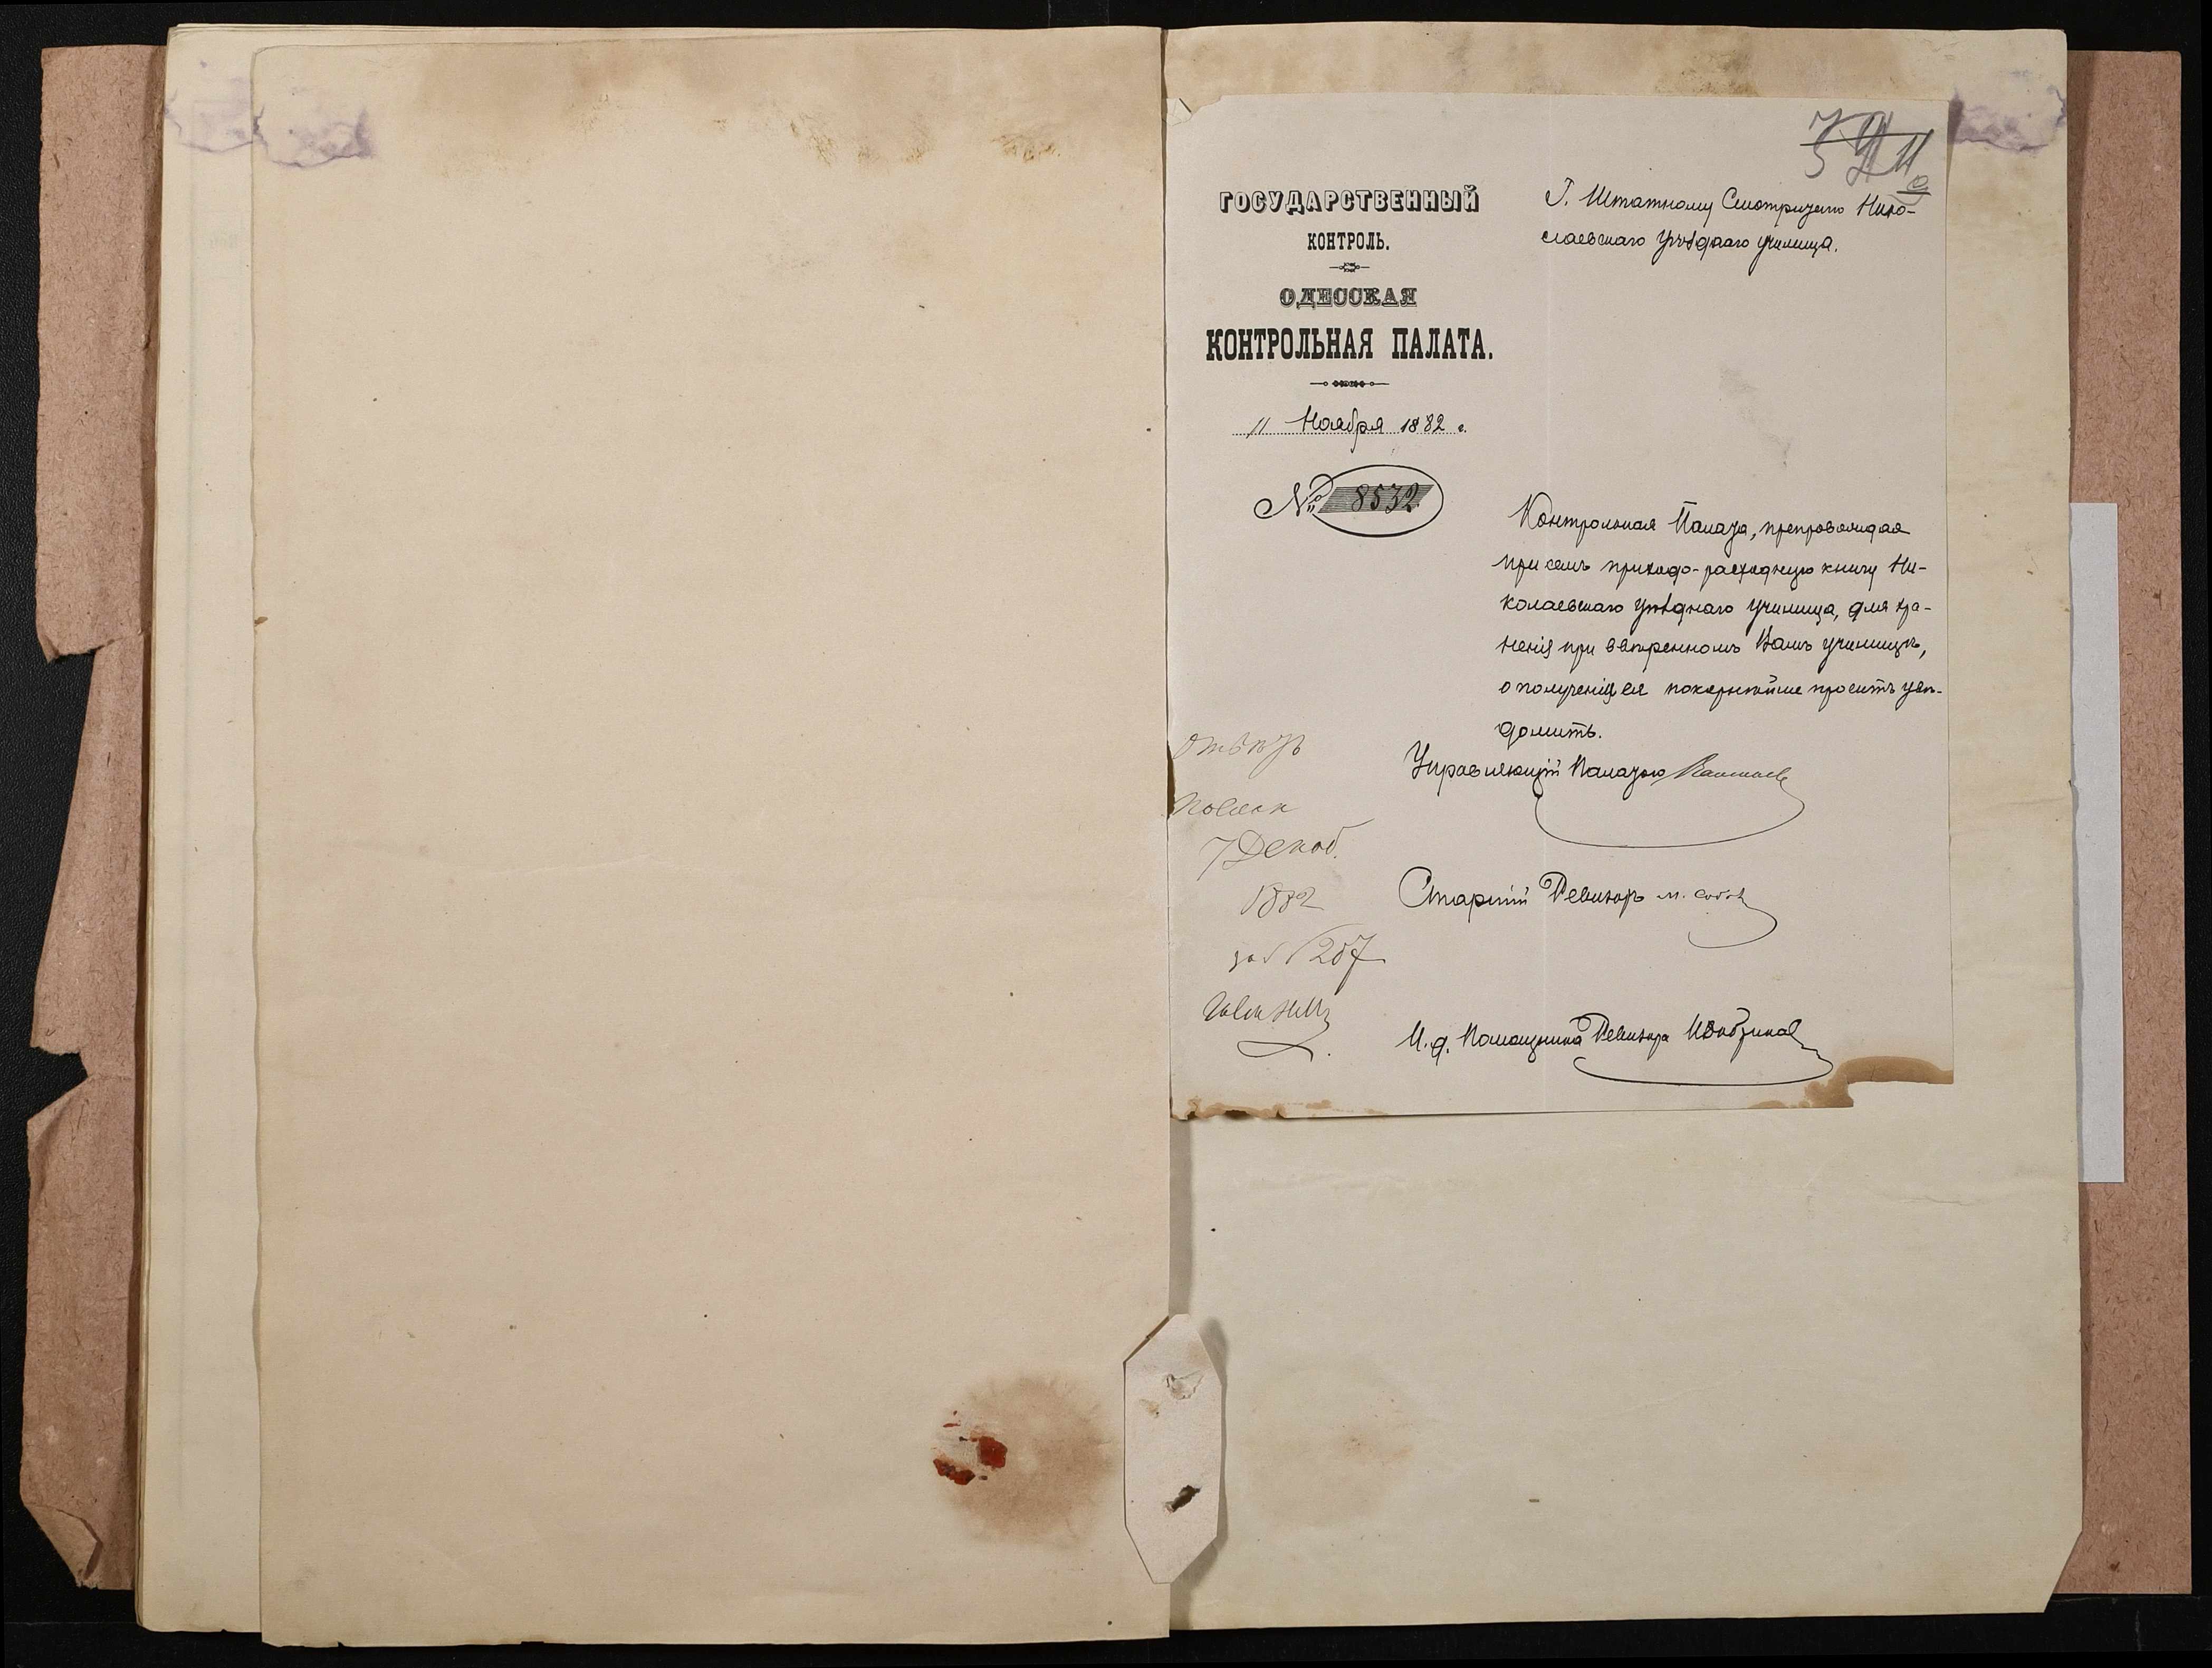 ГОСУДАРСТВЕННЫЙ
КОНТРОЛЬ.
ОДЕССКАЯ
КОНТРОЛЬНАЯ ПАЛАТА.
11 Ноября 1882 г.
№ 8532
Г. Штатному Смотрителю Нико-
лаевскаго Уѣзднаго училища.
Контрольная Палата, препровождая
при семъ приходо-расходную книгу Ни-
колаевскаго уѣзднаго училища, для хра-
ненія при ввѣренномъ Вамъ училищѣ,
о полученіи ея покорнѣйше проситъ увѣ-
домить.
Управляющій Палатою
Старшій Ревизоръ
И. д. Помощника Ревизора
Отвѣтъ
7 Декаб.
1882
за № 257